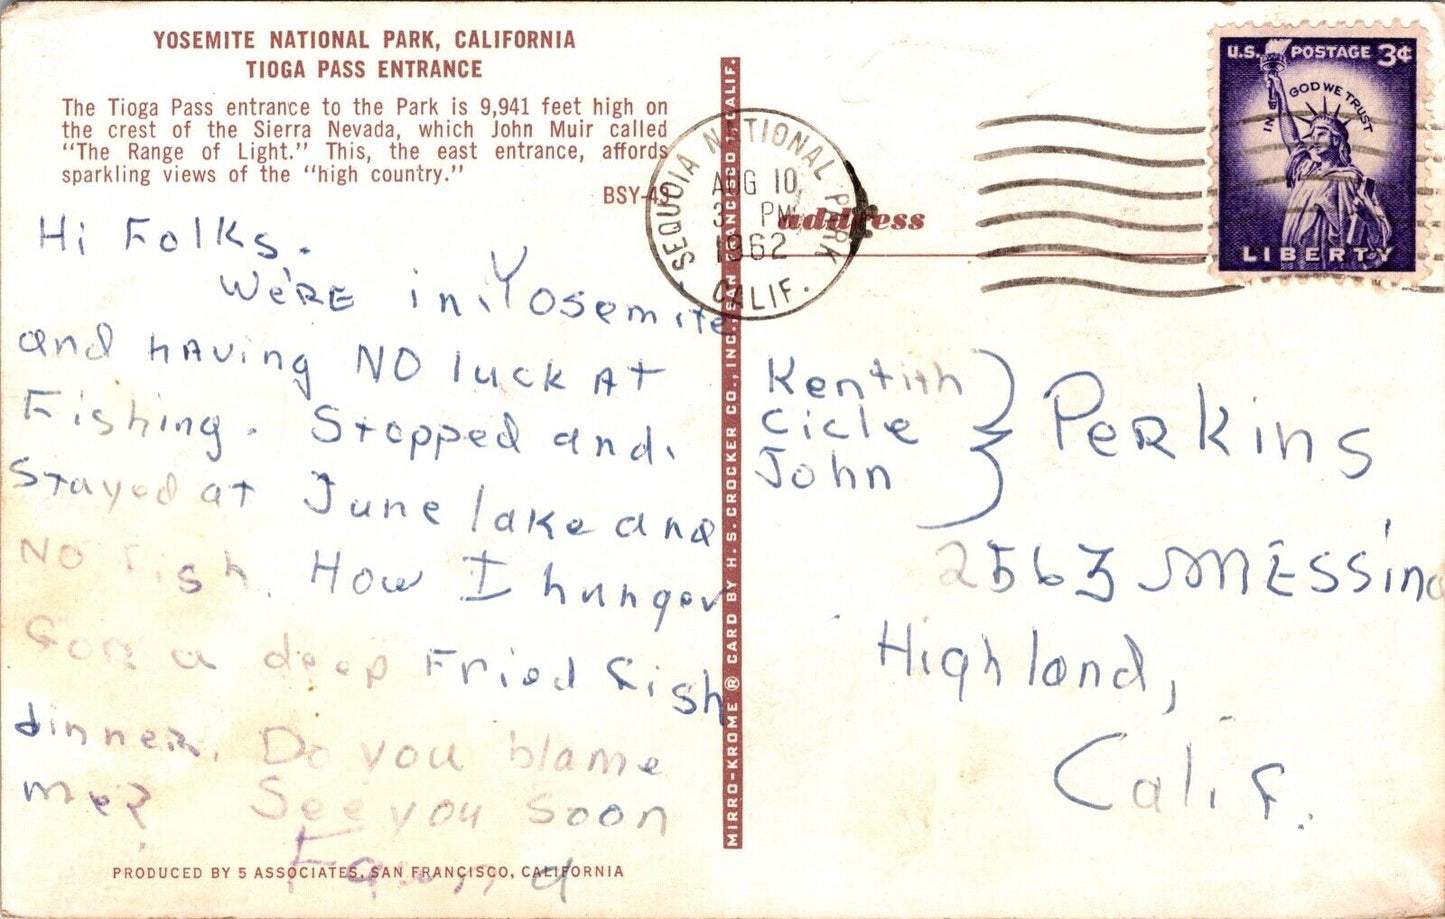 YOSEMITE NATIONAL PARK, CALIFORNIA
TIOGA PASS ENTRANCE
The Tioga Pass entrance to the Park is 9,941 feet high on
the crest of the Sierra Nevada, which John Muir called
"The Range of Light." This, the east entrance, affords
sparkling views of the "high country."
BSY-49
Hi Folks.
We'RE in Yosemite
and hAving NO luck At
Fishing. Stopped and
stayed at June lake and
NO Fish. How I hunger
For a deep Fried Fish
dinner. Do you blame
me? See you soon
PRODUCED BY 5 ASSOCIATES, SAN FRANCISCO, CALIFORNIA
MIRRO-KROME ® CARD BY H. S. CROCKER CO., INC., SAN FRANCISCO 1, CALIF.
SEQUOIA NATIONAL PARK
AUG 10
3 PM
1962
CALIF.
address
U.S. POSTAGE 3¢
IN GOD WE TRUST
LIBERTY
Kentith
Cicle
John
PeRkins
2563 MESSINA
Highland,
Calif.